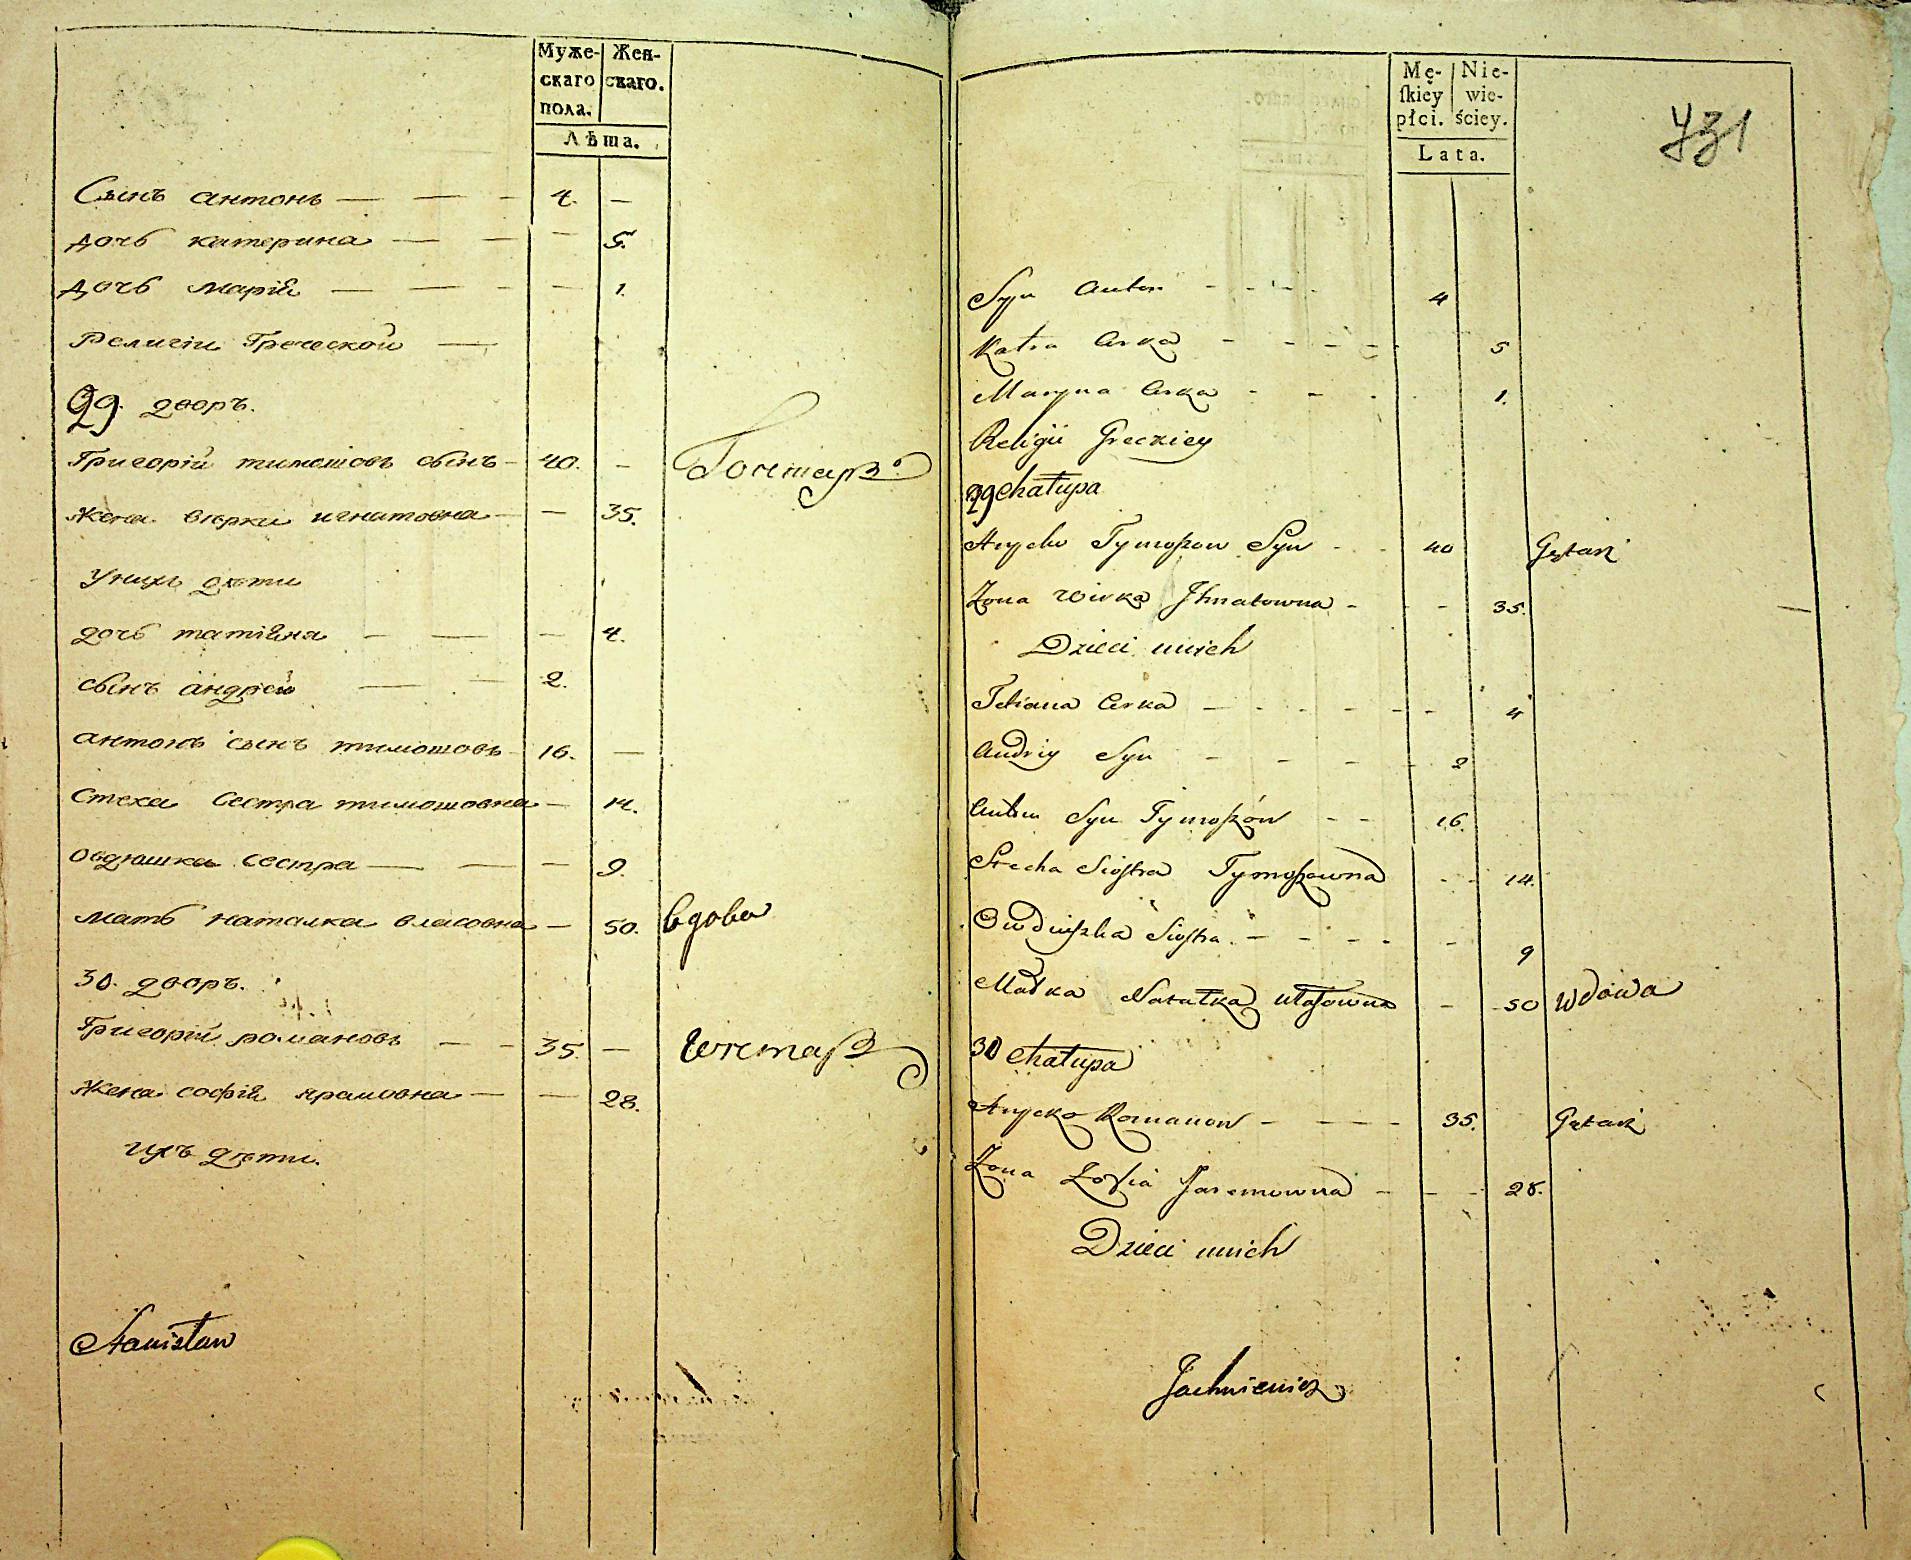 Муже-
скаго
пола.
Жен-
скаго.
Лѣта.
Сынъ антонъ — — — 4. —
дочь катерина — — — 5.
дочь марія — — — — 1.
Религіи Греческой —
29. дворъ.
Григорій тимошовъ сынъ — 40. —
Жена вѣрки игнатовна — — 35.
Унихъ дѣти
дочь татіяна — — — 4.
сынъ андрей — — 2.
антонъ сынъ тимошовъ 16. —
Стеха Сестра тимошовна — 14.
овдюшка сестра — — — 9.
мать наталка власовна — 50. вдова
30. дворъ.
Григорій романовъ — — 35. —
Жена софія ярамовна — — 28.
ихъ дѣти.
Stanisław
Mę-
skiey
płci.
Nie-
wie-
ściey.
Lata.
731
Syn Anton - - - - 4
Katra Curka - - - - - 5
Maryna Curka - - - 1.
Religii Greckiey
29 chałupa
Hryćko Tymoszow Syn - - 40
Żona Wiwka Ihnatowna - - - 35.
Dzieci unich
Tetiana Curka - - - - - - 4
Andriy Syn - - - - - 2
Anton Syn Tymoszów - - 16.
Stecha Siostra Tymoszowna - - 14.
Owdiuszka Siostra - - - - - 9
Matka Natałka Własowna - 50 Wdowa
30 chałupa
Hrycko Romanow - - - - 35.
Żona Zofia Jaremowna - - - 28.
Dzieci unich
Jachniewicz